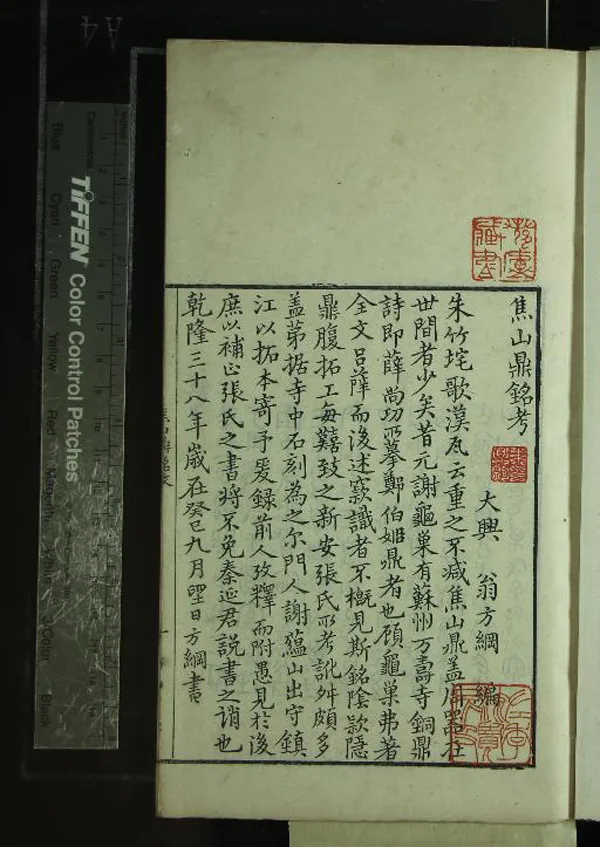 焦山鼎銘考
大興 翁方綱 編
朱竹垞歌漢瓦云重之不減焦山鼎盖周器在
世間者少矣昔元謝龜巢有蘇州万壽寺銅鼎
詩即薛尚功所摹鄭伯姬鼎者也顧龜巢弗著
全文吕薛而後述窾識者不概見斯銘陰款隱
鼎腹拓工每囏致之新安張氏所考訛舛頗多
盖苐据寺中石刻為之尔門人謝蘊山出守鎮
江以拓本寄予爰録前人攷釋而附愚見於後
庶以補正張氏之書將不免秦延君説書之誚也
乾隆三十八年歲在癸巳九月朢日方綱書
TIFFEN Color Control Patches
Blue
Cyan
Green
Yellow
Red
Magenta
Black
A4